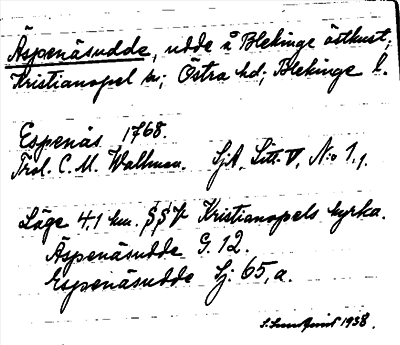 Äspenäsudde, udde å Blekinge östkust,
Kristianopel sn; Östra hd; Blekinge l.
Espenäs 1768.
Trol. C. M. Wallman. SjA, Litt. V, No 1,1.
Läge 4,1 km. SSV Kristianopels kyrka.
Äspenäsudde G. 12.
Espenäsudde Sj. 65, a.
1938.